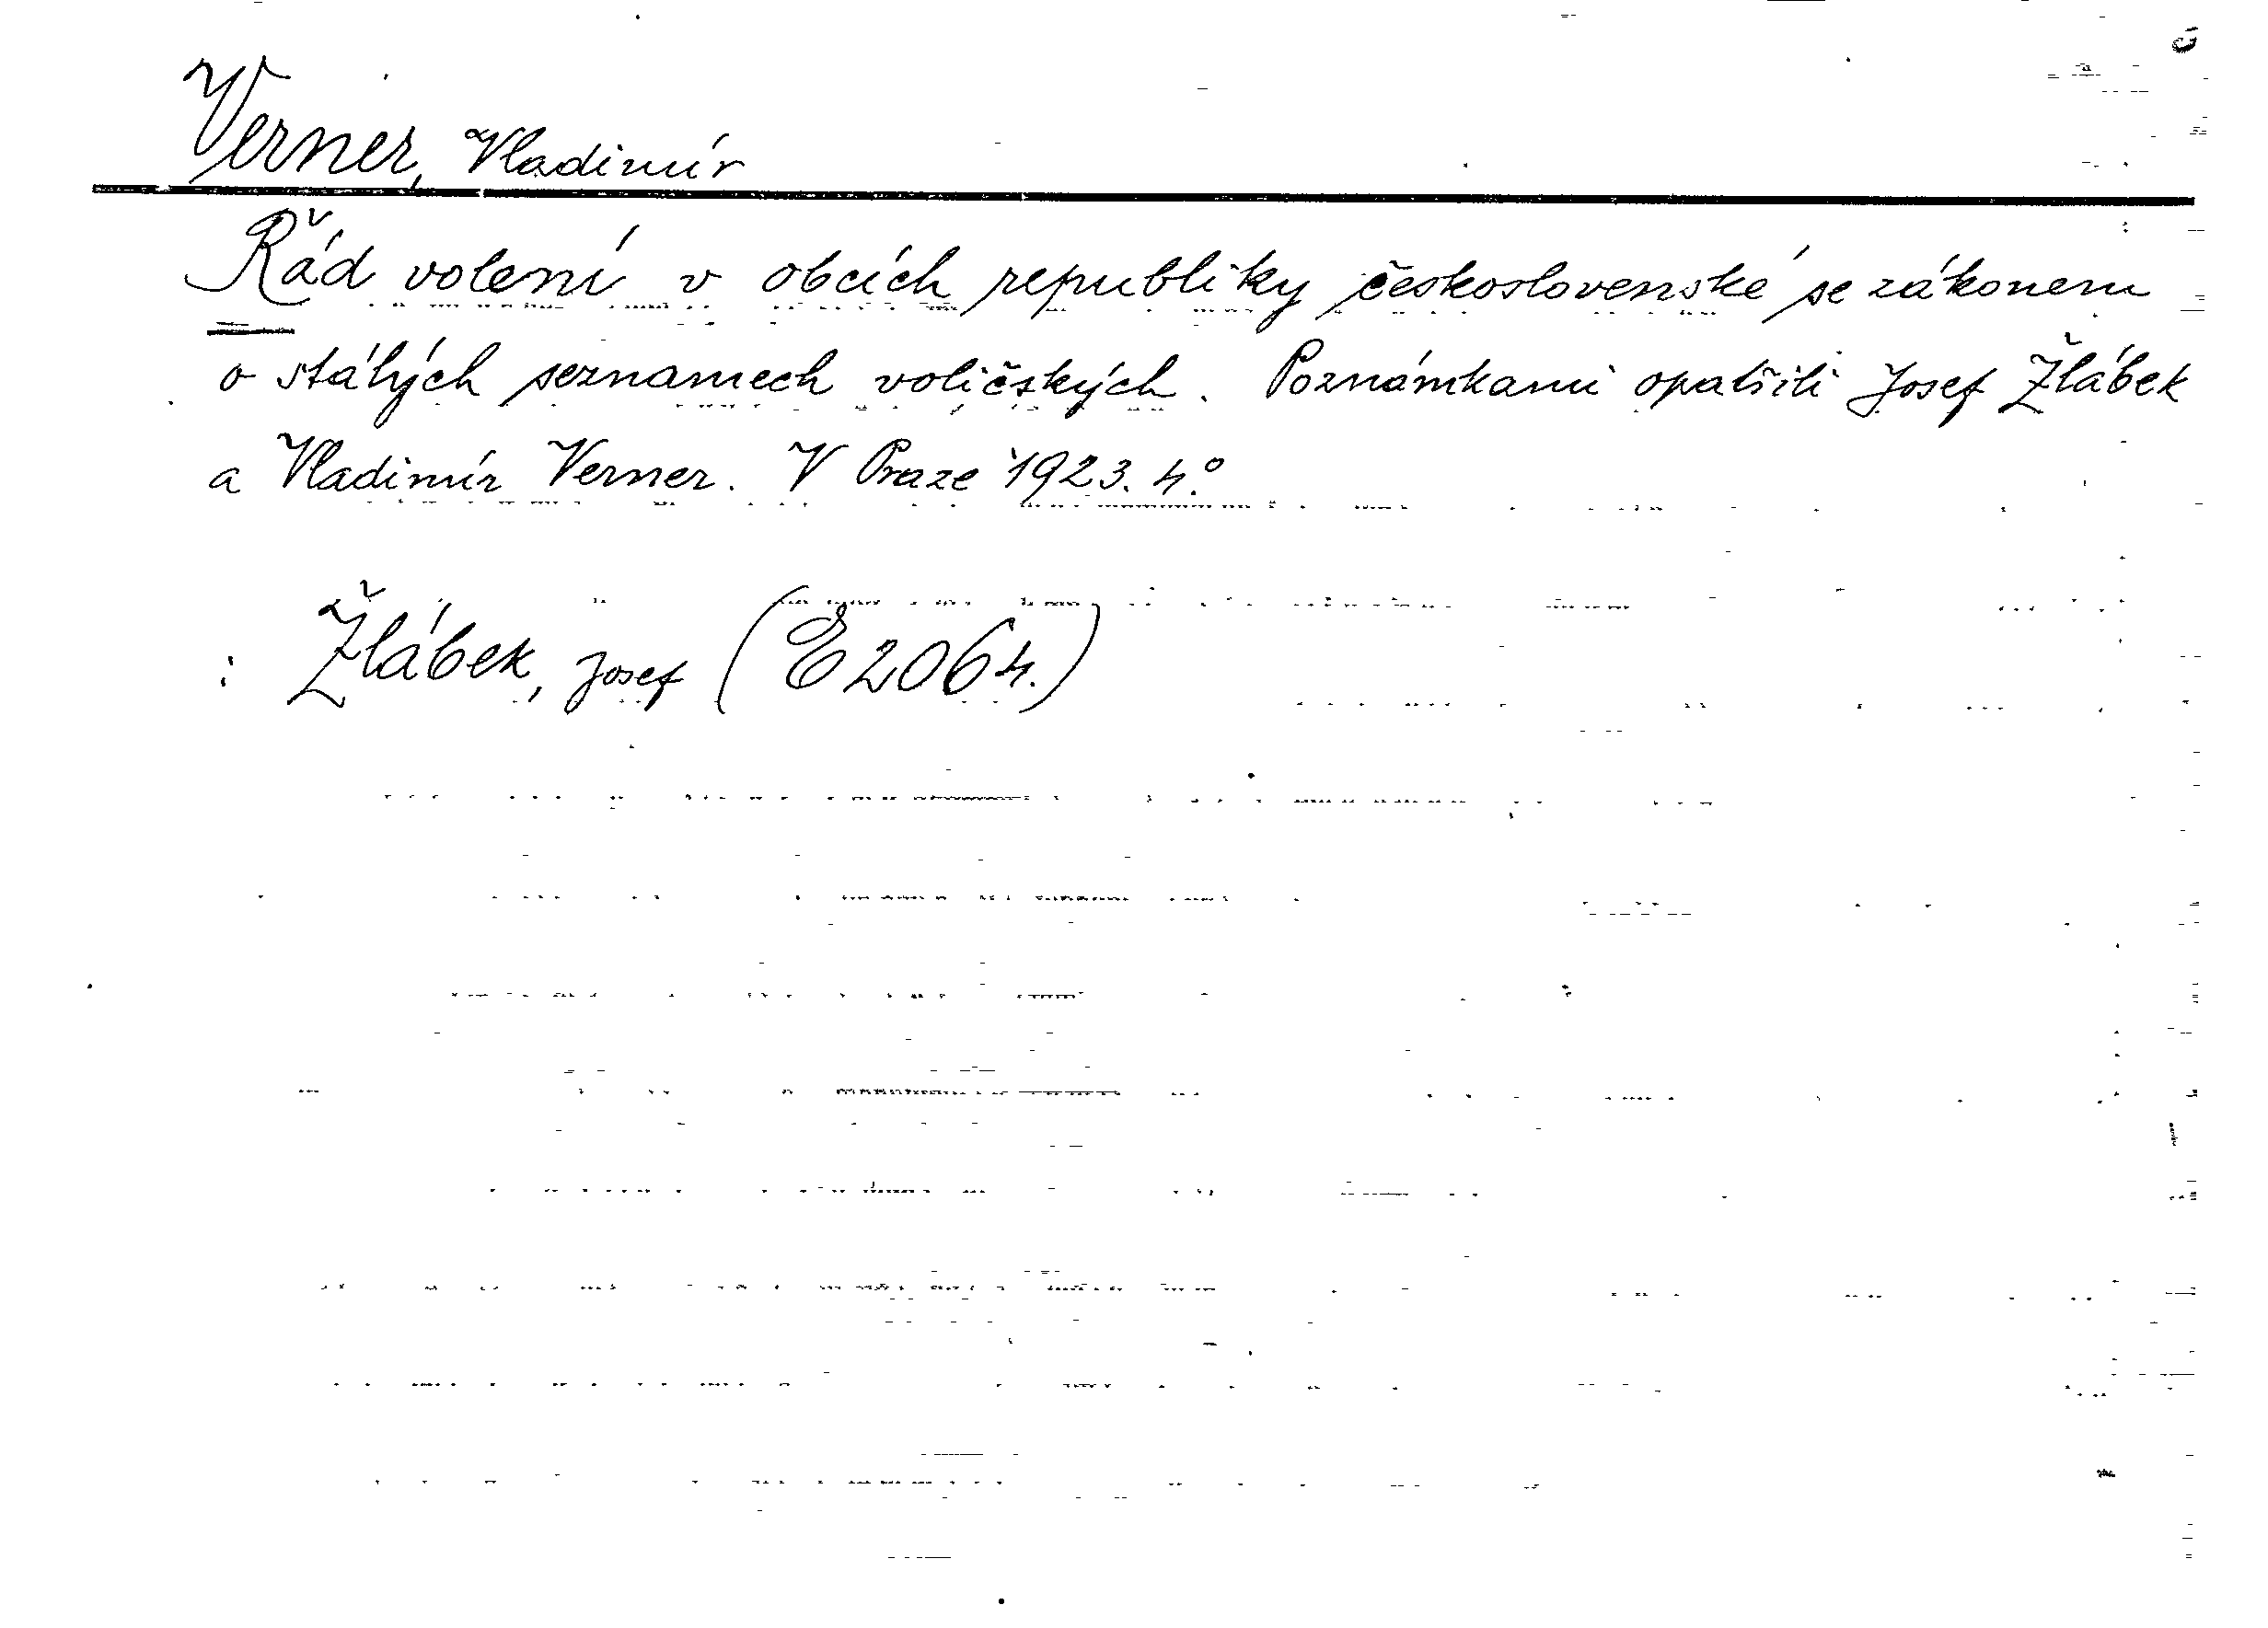 Verner, Vladimír
Řád volení v obcích republiky československé se zákonem
o stálých seznamech voličských. Poznámkami opatřili Josef Žlábek
a Vladimír Verner. V Praze 1923. 4.°
: Žlábek, Josef (E 2064.)